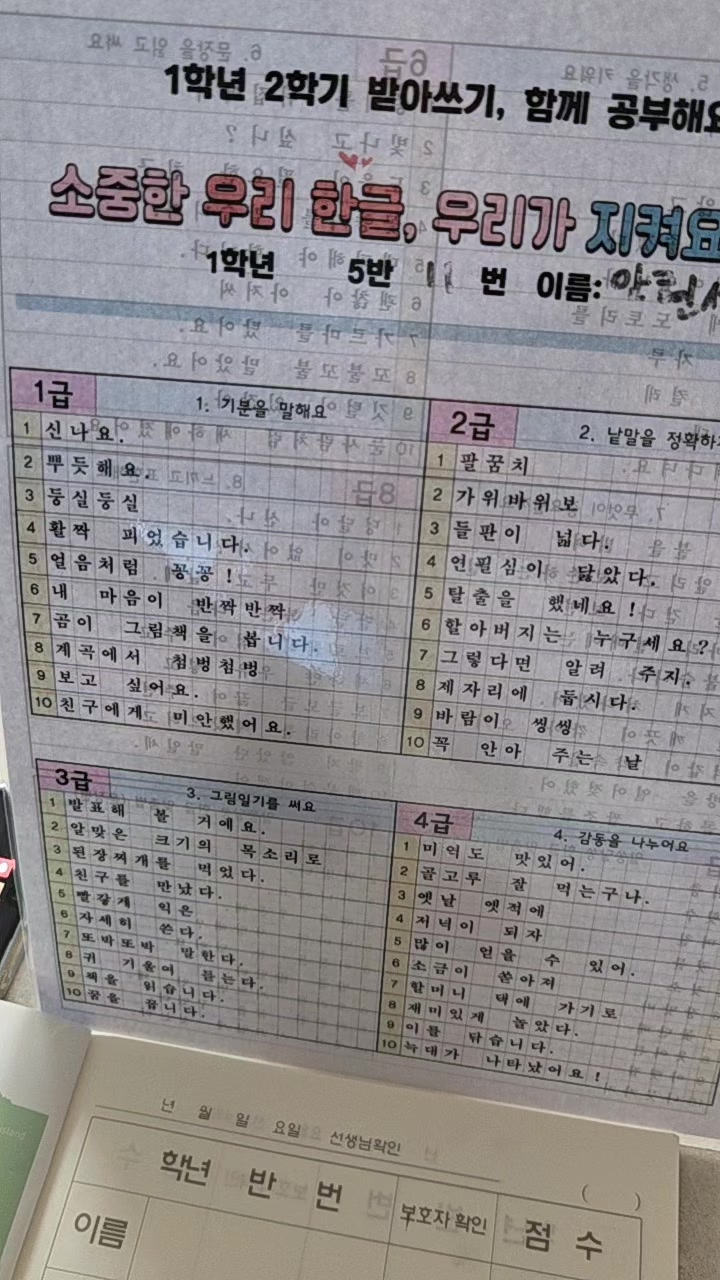 1학년 2학기 받아쓰기, 함께 공부해요
소중한 우리 한글, 우리가 지켜요
1학년 5반 11 번 이름:
1급 1. 기분을 말해요
1 신나요.
2 뿌듯해요.
3 둥실둥실
4 활짝 피었습니다.
5 얼음처럼 꽁꽁!
6 내 마음이 반짝반짝
7 곰이 그림책을 봅니다.
8 계곡에서 첨벙첨벙
9 보고 싶어요.
10 친구에게 미안했어요.
2급 2. 낱말을 정확하
1 팔꿈치
2 가위바위보
3 들판이 넓다.
4 연필심이 닳았다.
5 탈출을 했네요!
6 할아버지는 누구세요?
7 그렇다면 알려 주지.
8 제자리에 둡시다.
9 바람이 씽씽
10 꼭 안아 주는 날
3급 3. 그림일기를 써요
1 발표해 볼 거예요.
2 알맞은 크기의 목소리로
3 된장찌개를 먹었다.
4 친구를 만났다.
5 빨갛게 익은
6 자세히 쓴다.
7 또박또박 말한다.
8 귀 기울여 듣는다.
9 책을 읽습니다.
10 꿈을 꿉니다.
4급 4. 감동을 나누어요
1 미역도 맛있어.
2 골고루 잘 먹는구나.
3 옛날 옛적에
4 저녁이 되자
5 많이 얻을 수 있어.
6 소금이 쏟아져
7 할머니 댁에 가기로
8 재미있게 놀았다.
9 이를 닦습니다.
10 늑대가 나타났어요!
년 월 일 요일 선생님확인
( )
학년 반 번 부호자 확인 점 수
이름